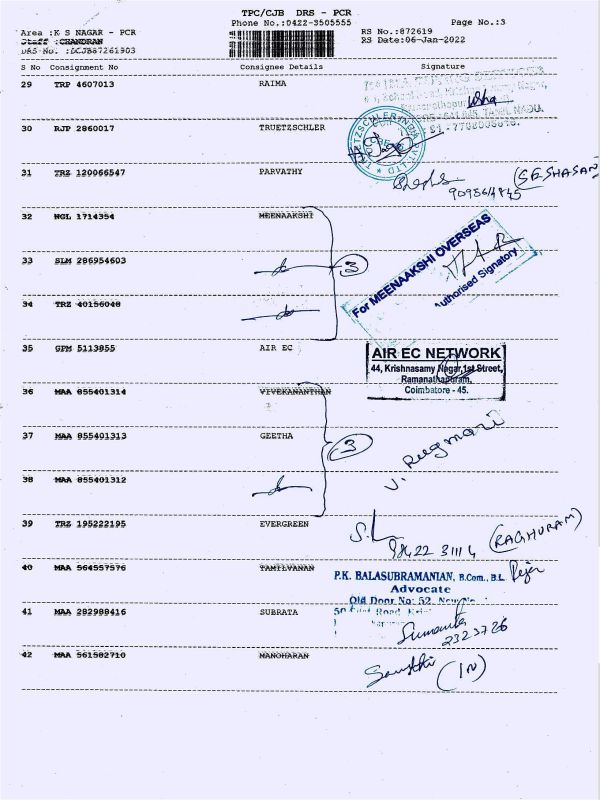 TPC/CJB DRS - PCR
Phone No.:0422-3505555 Page No.:3
Area :K S NAGAR - PCR RS No.:872619
Staff :CHANDRAN RS Date:06-Jan-2022
DRS-No. :DCJB87261903
S No Consignment No Consignee Details Signature
29 TRP 4607013 RAIMA
30 RJP 2860017 TRUETZSCHLER
31 TRZ 120066547 PARVATHY (SESHASAN)
32 NGL 1714354 MEENAAKSHI
For MEENAAKSHI OVERSEAS
33 SLM 286954603 3
Authorised Signatory
34 TRZ 40156048
35 GPM 5113855 AIR EC
AIR EC NETWORK
44, Krishnasamy Nagar,1st Street,
Ramanathapuram,
Coimbatore - 45.
36 MAA 855401314 VIVEKANANTHAN
37 MAA 855401313 GEETHA 3
38 MAA 855401312
39 TRZ 195222195 EVERGREEN
98422 31114 (RAGHURAM)
40 MAA 564557576 TAMILVANAN
P.K. BALASUBRAMANIAN, B.Com., B.L.
Advocate
Old Door No: 52,
41 MAA 282988416 SUBRATA
2323726
42 MAA 561582710 MANOHARAN
(IN)